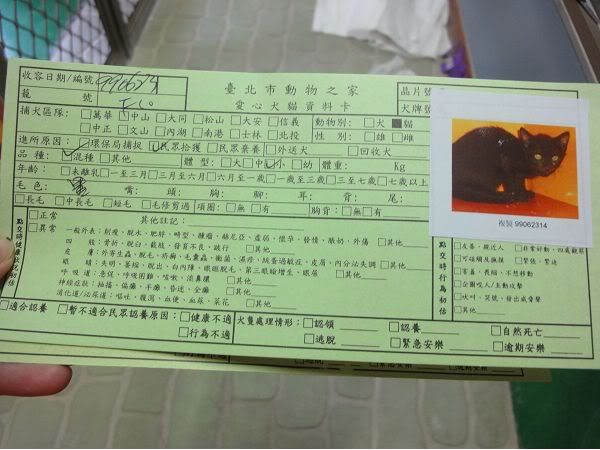 收容日期/編號
臺北市動物之家
晶片號
籠 號
愛心犬貓資料卡
犬牌號
捕犬區隊:□萬華□中山□大同□松山□大安□信義 動物別:□犬■貓
□中正□文山□內湖□南港□士林□北投 性 別:□雄□雌
進所原因:□環保局捕捉□民眾拾獲□民眾棄養□外送犬 □回收犬
品 種:□混種□其他 體 型:□大□中□小□幼 體重: Kg
年齡:□未離乳□一至三月□三月至六月□六月至一歲□一歲至三歲□三至七歲□七歲以上
毛 色: 黑 嘴: 頭: 胸: 腳: 耳: 背: 尾:
□長毛 □中長毛 □短毛 □毛修剪過 項圈:□無□有 胸背:□無□有
複製 99062314
點交時健康狀況初估
□正常
□異常
其他註記:
一般外表:削瘦、脫水、肥胖、畸型、腫瘤、虛弱、懷孕、發情、脹奶、外傷 □其他
四 肢:骨折、脫臼、截肢、發育不良、跛行 □其他
皮 膚:外寄生蟲、脫毛、疥癬、毛囊蟲、黴菌、濕疹、皮屑、內分泌失調 □其他
眼 睛:失明、萎縮、脫出、白內障、眼瞼脫毛、第三眼瞼增生、眼屎 □其他
呼 吸 道:急促、呼吸困難、咳嗽、流鼻膿 □其他
神經症狀:抽搐、偏癱、半癱、昏迷、全癱 □其他
消化道/泌尿道:嘔吐、腹瀉、血便、血尿、菜花 □其他
點交時行為初估
□友善、親近人 □非常好動、四處觀察
□可碰觸及擁抱 □緊張、緊迫
□害羞、畏縮、不想移動
□企圖咬人/主動攻擊
□吠叫、哭號、發出威脅聲
□其他
□適合認養 □暫不適合民眾認養原因:□健康不適
□行為不適
犬隻處理情形:□認領 □認養 □自然死亡
□逃脫 □緊急安樂 □逾期安樂